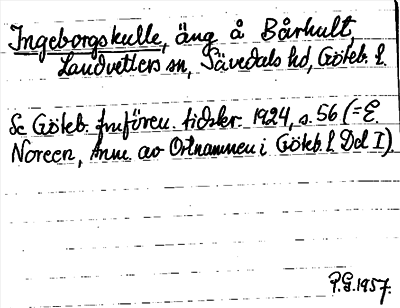 Ingeborgskulle, äng å Bårhult,
Landvetters sn, Sävedals hd, Göteb. l.
Se Göteb. fmfören. tidskr. 1924, s. 56 (= E.
Noreen, Anm. av Ortnamnen i Göteb. l. Del I).
P.G. 1957.